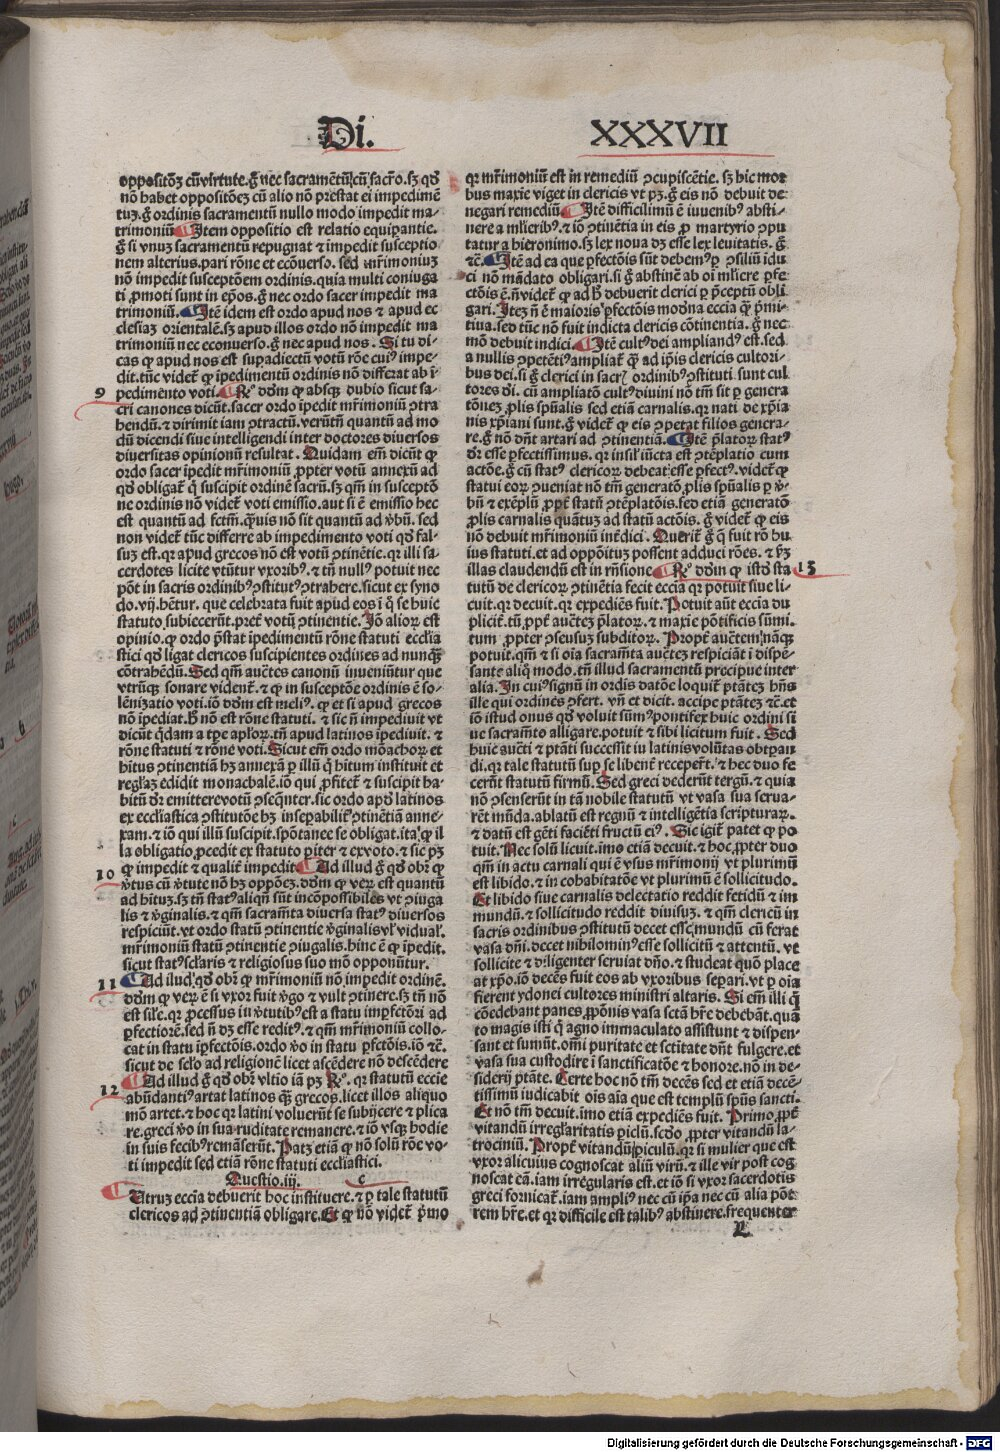 Di. XXXVII
oppositōꝫ cū virtute. g̃ nec sacramentū cū sacr̃o. sꝫ qd̃
nō habet oppositōeꝫ cū alio nō prestat ei impedimē
tuꝫ. g̃ ordinis sacramentū nullo modo impedit ma-
trimoniū Item oppositio est relatio equiparantie.
g̃ si vnuꝫ sacramentū repugnat ⁊ impedit susceptio
nem alterius. pari rōne et ecōuerso. sed mr̃imoniuꝫ
nō impedit susceptōem ordinis. quia multi coniuga
ti ꝓmoti sunt in ep̃os. g̃ nec ordo sacer impedit ma
trimoniū. Itē idem est ordo apud nos ⁊ apud ec
clesiaꝫ orientalē. sꝫ apud illos ordo nō impedit ma
trimoniū nec econuerso. g̃ nec apud nos. Si tu di-
cas ꝙ apud nos est supadiectū votū rōne cuiꝰ impe-
dit. tūc videt̃ ꝙ īpedimentū ordinis nō differat ab ī-
9 pedimento voti. Rº dōm ꝙ absqꝫ dubio sicut sa-
cri canones dicūt. sacer ordo īpedit mr̃imoniū ꝯtra
hendū. ⁊ dirimit iam ꝯtractū. verūtn̄ quantū ad mo
dū dicendi siue intelligendi inter doctores diuersos
diuersitas opinionū resultat. Quidam em̄ dicūt ꝙ
ordo sacer īpedit mr̃imoniū ꝓpter votū annexū ad
qd̃ obligat̃ q̇ suscipit ordinē sacrū. sꝫ qm̄ in susceptō
ne ordinis nō videt̃ voti emissio. aut si ē emissio hec
est quantū ad fctm̄. q̃uis nō sit quantū ad v̓bū. sed
non videt̃ tūc differre ab impedimento voti qd̃ fal-
suꝫ est. qꝛ apud grecos nō est votū ꝯtinētie. qꝛ illi sa-
cerdotes licite vtūtur vxoribꝰ. ⁊ tn̄ nullꝰ potuit nec
pōt in sacris ordinibꝰ ꝯstitutꝰ ꝯtrahere. sicut ex syno
do. vij. hētur. que celebrata fuit apud eos ī q̄ se huic
statuto subiecerūt. pret̃ votū ꝯtinentie. Iō alioꝝ est
opinio. ꝙ ordo p̄stat īpedimentū rōne statuti eccl̃ia
stici qd̃ ligat clericos suscipientes ordines ad nunqꝫ
cōtrahēdū. Sed qm̄ auc̄tes canonū inueniūtur que
vtrūqꝫ sonare vident̃. ⁊ ꝙ in susceptōe ordinis ē so-
lēnizatio voti. iō dōm est meliꝰ. ꝙ et si apud grecos
nō īpediat. h̄ nō est rōne statuti. ⁊ sic n̄ impediuit vt
dicūt q̇dam a tp̄e apl̃oꝝ. tn̄ apud latinos īpediuit. ⁊
rōne statuti ⁊ rōne voti. Sicut em̄ ordo mōachoꝝ et
hītus ꝯtinentiā hꝫ annexā ꝑ illū q̇ hītum instituit et
regl̃aꝫ edidit monachalē. iō qui ꝓfitet̃ ⁊ suscipit ha-
bitū dr̃ emittere votū ꝯseq̄nter. sic ordo apd̃ latinos
ex eccl̃iastica ꝯstitutōe hꝫ insepabilit̃ ꝯtinētiā anne-
xam. ⁊ iō qui illū suscipit. spōtanee se obligat. ita ꝙ il
la obligatio ꝓcedit ex statuto pit̃er ⁊ ex voto. ⁊ sic pꝫ
ꝙ impedit ⁊ qualit̃ impedit. Ad illud g̃ qd̃ obr̃ ꝙ
10 v̓tus cū v̓tute nō hꝫ oppōeꝫ. dōm ꝙ veꝝ est quantū
ad hītuꝫ. sꝫ tn̄ statꝰ aliqn̄ sūt incōpossibiles vt ꝯiuga
lis ⁊ v̓ginalis. ⁊ qm̄ sacram̄ta diuersa statꝰ diuersos
respiciūt. vt ordo statū ꝯtinentie v̓ginalis vl̓ vidual̓.
mr̃imoniū statū ꝯtinentie ꝯiugalis. hinc ē ꝙ īpedit.
sicut statꝰ scl̃aris ⁊ religiosus suo mō opponūtur.
11 Ad illud qd̃ obr̃ ꝙ mr̃imoniū nō impedit ordinē.
dōm ꝙ veꝝ ē si vxor fuit v̓go ⁊ vult ꝯtinere. sꝫ tn̄ nō
est sil̃e. qꝛ ꝓcessus in v̓tutibꝰ est a statu imꝑfctōri ad
ꝑfectiorē. sed n̄ dꝫ esse reditꝰ. ⁊ qm̄ mr̃imoniū collo-
cat in statu īꝑfectōis. ordo v̓o in statu ꝑfctōis. iō ⁊c̄.
sicut de scl̃o ad religionē licet ascēdere nō descēdere
Ad illud g̃ qd̃ obr̃ vltīo iā pꝫ Rº. qꝛ statutū eccl̃ie
12 abūdantiꝰ artat latinos qꝫ̄ grecos. licet illos aliquo
mō artet. ⁊ hoc qꝛ latini voluerūt se subijcere ⁊ plica
re. greci v̓o in sua ruditate remanere. ⁊ iō vsqꝫ hodie
in suis fecibꝰ remāserūt. Patꝫ etiā ꝙ nō solū rōe vo-
ti impedit sed etiā rōne statuti eccl̃iastici.
Questio. iij. c
Utruꝫ eccl̃ia debuerit hoc instituere. ⁊ ꝑ tale statutū
clericos ad ꝯtinentiā obligare. Et ꝙ nō videt̃ p̄mo
qꝛ mr̃imoniū est in remediū ꝯcupiscētie. sꝫ hic mor
bus maxīe viget in clericis vt pꝫ. g̃ eis nō debuit de-
negari remediū Itē difficilimū ē iuuenibꝰ absti-
nere a mlieribꝰ. ⁊ iō ꝯtinētia in eis ꝓ martyrio ꝯpu
tatur a hieronimo. sꝫ lex noua dꝫ esse lex leuitatis. g̃
⁊c̄. Itē ad ea que ꝑfectōis sūt debemꝰ ꝑ ꝯsiliū idu
ci nō mādato obligari. si g̃ abstinē ab oī mliere ꝑfe
ctōis ē. n̄ videt̃ ꝙ ad h̄ debuerit clerici ꝑ p̄ceptū obli
gari. Iteꝫ n̄ ē maioris ꝑfectōis mod̃na eccl̃ia q̄ꝫ p̄mi-
tiua. sed tūc nō fuit indicta clericis cōtinentia. g̃ nec
mō debuit indici. Itē cultꝰ dei ampliandꝰ est. sed
a nullis ꝯpetētiꝰ ampliat̃ qꝫ̄ ad ip̄is clericis cultori-
bus dei. si g̃ clerici in sacrꝭ ordinibꝰ ꝯstituti sunt cul
tores dī. cū ampliatō cultꝰ diuini nō tm̄ sit ꝑ genera
tōneꝫ ꝓlis spūalis sed etiā carnalis. qꝛ nati de xp̄ia
nis xp̄iani sunt. g̃ videt̃ ꝙ eis ꝯpetat filios genera-
re. g̃ nō dn̄t artari ad ꝯtinentiā. Itē p̄latoꝝ statꝰ
dr̃ esse ꝑfectissimus. qꝛ insil̃ iūcta est ꝯtēplatio cum
actōe. g̃ cū statꝰ clericoꝝ debeat esse ꝑfectꝰ. videt̃ ꝙ
statui eoꝝ ꝯueniat nō tm̄ generatō ꝓlis spūalis ꝑ v̓-
bū ⁊ exēplū ꝓpt̃ statū ꝯtēplatōis. sed etiam generatō
ꝓlis carnalis quātuꝫ ad statū actōis. g̃ videt̃ ꝙ eis
nō debuit mr̃imoniū inēdici. Querit̃ g̃ q̄ fuit rō hu
ius statuti. et ad oppōituꝫ possent adduci rōes. ⁊ vꝫ
illas claudendū est in rn̄sione Rº dōm ꝙ istd̃ sta 13
tutū de clericoꝝ ꝯtinētia fecit eccl̃ia qꝛ potuit siue li-
cuit. qꝛ decuit. qꝛ expediēs fuit. Potuit aūt eccl̃ia du
plicit̃. tū ꝓpt̃ auc̄tez p̄latoꝝ. ⁊ maxīe pōtificis sūmi.
tum ꝓpter ꝯseusuꝫ subditoꝝ. Propt̃ auc̄tem nāqꝫ
potuit. qm̄ ⁊ si oīa sacram̄ta auc̄teꝫ respiciāt ī dispē-
sante aliq̄ modo. tn̄ illud sacramentū precipue inter
alia. In cuiꝰ signū in ordīs datōe loquit̃ ptātez hn̄s
ille qui ordinēs ꝯfert. vn̄ et dicit. accipe ptātez ⁊c̄. et
iō istud onus qd̃ voluit sūmꝰ pontifex huic ordini si
ue sacram̄to alligare. potuit ⁊ sibi licitum fuit. Sed
huic auc̄ti ⁊ ptāti successit iu latinis volūtas obtꝑan
di. qꝛ tale statutū suꝑ se libent̃ receper̃t. ⁊ hec duo fe
cerūt statutū firmū. Sed greci dederūt tergū. ⁊ quia
nō ꝯsenserūt in tā nobile statutū vt vasa sua serua-
rēt mūda. ablatū est regnū ⁊ intelligētia scripturaꝝ.
⁊ datū est gēti faciēti fructū eiꝰ. Sic igit̃ patet ꝙ po
tuit. Nec solū licuit. imo etiā decuit. ⁊ hoc ꝓpter duo
qm̄ in actu carnali qui ē vsus mr̃imonij vt plurimū
est libido. ⁊ in cohabitatōe vt plurimū ē sollicitudo.
Et libido siue carnalis delectatio reddit fetidū ⁊ im
mundū. ⁊ sollicitudo reddit diuisuꝫ. ⁊ qm̄ clericū in
sacris ordinibus ꝯstitutū decet esse mundū cū ferat
vasa dn̄i. decet nibilominꝰ esse sollicitū ⁊ attentū. vt
sollicite ⁊ diligenter seruiat dn̄o. ⁊ studeat quō place
at xp̄o. iō decēs fuit eos ab vxoribus separi. vt ꝑ oīa
fierent ydonei cultores ministri altaris. Si em̄ illi q̇
cōedebant panes ꝓpōnis vasa sctā hr̃e debebāt. quā
to magis isti q̇ agno immaculato assistunt ⁊ dispen-
sant et sumūt. om̄i puritate et sctitate dn̄t fulgere. et
vasa sua custodire ī sanctificatōe ⁊ honore. nō in de-
siderij ptāte. Certe hoc nō tm̄ decēs sed et etiā decē-
tissimū iudicabit oīs aīa que est templū spūs sancti.
Et nō tm̄ decuit. imo etiā expediēs fuit. Primo ꝓpt̃
vitandū irregl̃aritatis piclū. sc̄do ꝓpter vitandū la-
trociniū. Propt̃ vitandū piculū. qꝛ si mulier que est
vxor alicuius cognoscat aliū virū. ⁊ ille vir post cog
noscat eā. iam irregularis est. et iō si vxor sacerdotis
greci fornicat̃. iam ampliꝰ nec cū ip̄a nec cū alia pōt
rem hr̃e. et qꝛ difficile est talibꝰ abstinere. frequenter
L
Digitalisierung gefördert durch die Deutsche Forschungsgemeinschaft - DFG